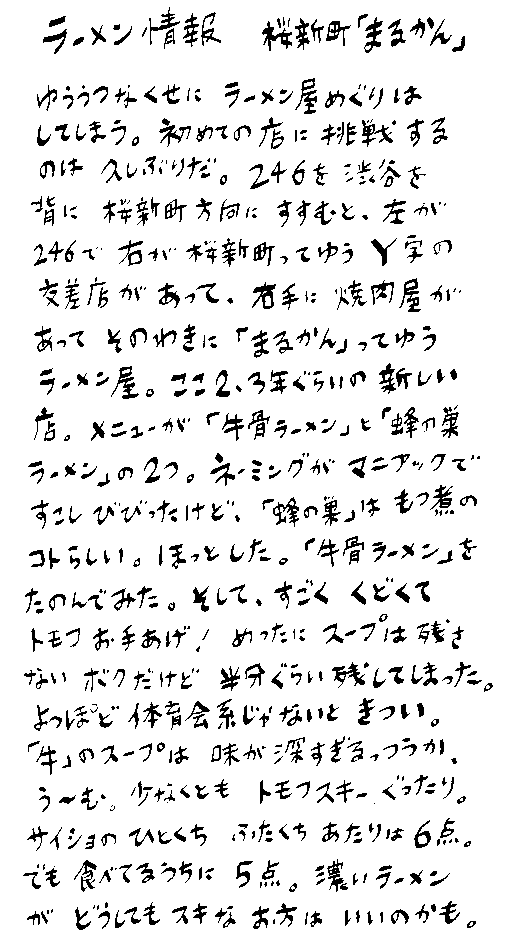 ラーメン情報　桜新町「まるかん」
ゆううつなくせに ラーメン屋めぐりは
してしまう。初めての店に挑戦する
のは 久しぶりだ。246を 渋谷を
背に 桜新町方向に すすむと、左が
246で 右が 桜新町ってゆう Y字の
交差店が あって、右手に 焼肉屋が
あって そのわきに「まるかん」ってゆう
ラーメン屋。ここ2、3年ぐらいの 新しい
店。メニューが「牛骨ラーメン」と「蜂の巣
ラーメン」の2つ。ネーミングが マニアックで
すこし びびったけど、「蜂の巣」は もつ煮の
コトらしい。ほっとした。「牛骨ラーメン」を
たのんでみた。そして、すごく くどくて
トモフ お手あげ! めったに スープは残さ
ない ボクだけど 半分ぐらい残してしまった。
よっぽど 体育会系じゃないと きつい。
「牛」のスープは 味が深すぎるっつうか、
う〜む。少なくとも トモフスキー ぐったり。
サイショの ひとくち ふたくち あたりは 6点。
でも 食べてるうちに 5点。濃いラーメン
が どうしても スキな お方は いいのかも。